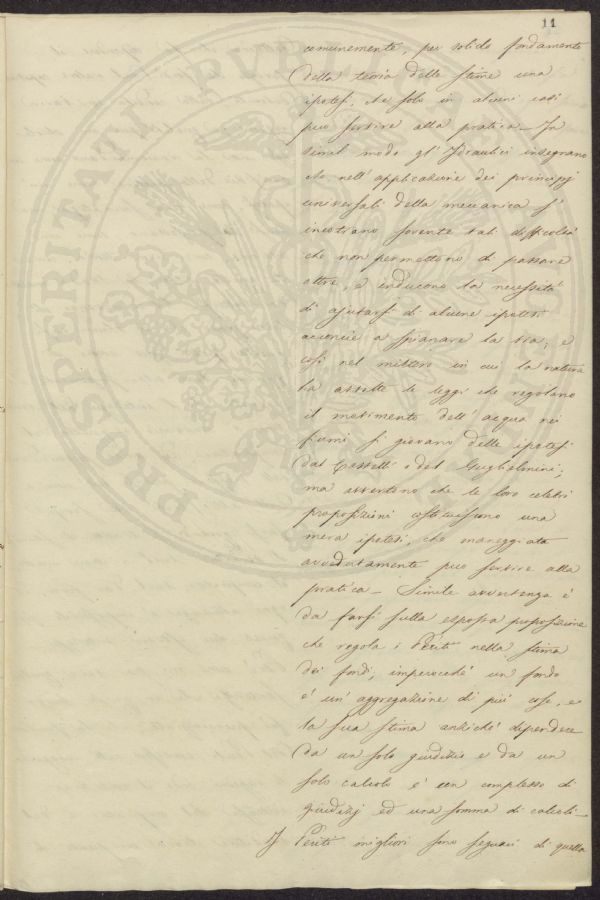 11
comunemente, per solido fondamento
della teoria delle stime una
ipotesi, che solo in alcuni casi
può servire alla pratica – In
simil modo gl' Idraulici insegnano
che nell' applicazione dei principj
universali della meccanica s'
incontrano sovente tali difficoltà
che non permettono di passare
oltre, e inducono la necessità
di ajutarsi di alcune ipotesi
acconcie a spianare la via; e
così nel mistero in cui la natura
ha avvolte le leggi che regolano
il movimento dell' acqua nei
fiumi si giovano delle ipotesi
del Castelli e del Guglielmini;
ma avvertono che le loro celebri
proposizioni costituiscono una
mera ipotesi, che maneggiata
avvedutamente può servire alla
pratica – Simile avvertenza è
da farsi sulla esposta proposizione
che regola i Periti nella stima
dei fondi, imperocché un fondo
è un' aggregazione di più cose, e
la sua stima anziché dipendere
da un solo giudizio e da un
solo calcolo è un complesso di
giudizj ed una somma di calcoli –
I Periti migliori sono seguaci di quella
PROSPERITATI PVBLICAE